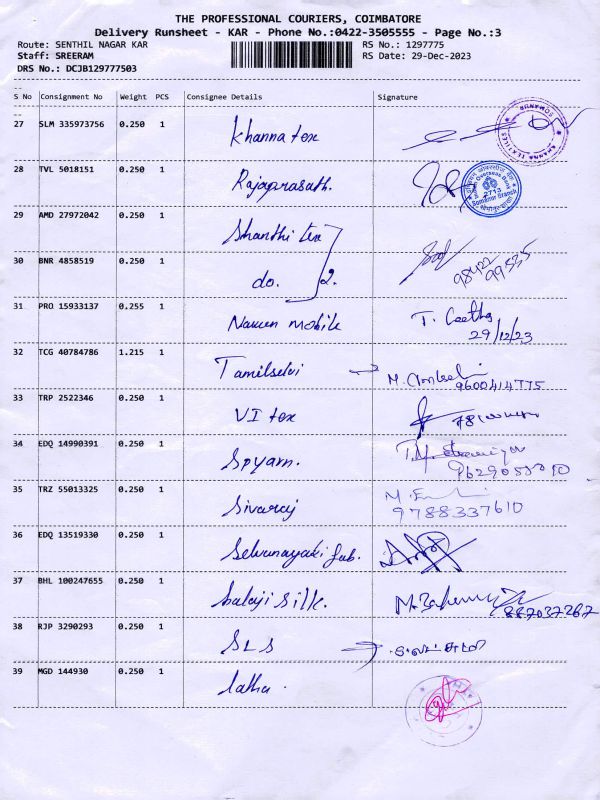 THE PROFESSIONAL COURIERS, COIMBATORE
Delivery Runsheet - KAR - Phone No.:0422-3505555 - Page No.:3
Route: SENTHIL NAGAR KAR RS No.: 1297775
Staff: SREERAM RS Date: 29-Dec-2023
DRS No.: DCJB129777503
S No Consignment No Weight PCS Consignee Details Signature
27 SLM 335973756 0.250 1 Khanna tex
KHANNA TEXTILES SOMANUR
28 TVL 5018151 0.250 1 Rajaprasath.
Overseas Bank 2713 Somanur Branch
29 AMD 27972042 0.250 1 Shanthi tex
30 BNR 4858519 0.250 1 do. 2. 98422 99535
31 PRO 15933137 0.255 1 Naveen mobile T. Geetha
29/12/23
32 TCG 40784786 1.215 1 Tamilselvi M.
9600414775
33 TRP 2522346 0.250 1 VI tex
34 EDQ 14990391 0.250 1 Spyam.
35 TRZ 55013325 0.250 1 Sivaraj M.
9788337610
36 EDQ 13519330 0.250 1 Selvanayaki fab.
37 BHL 100247655 0.250 1 balaji silk.
38 RJP 3290293 0.250 1 SLS
39 MGD 144930 0.250 1 latha.